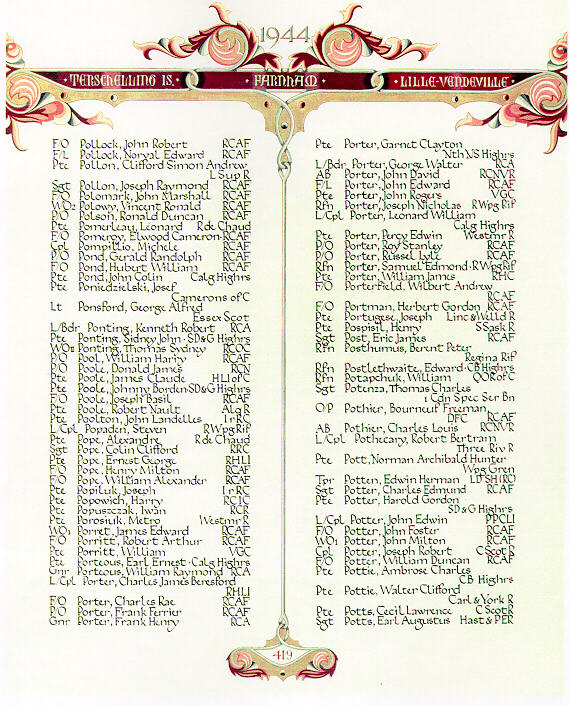 1944
· TERSCHELLING IS. · FARNHAM · LILLE-VENDEVILLE ·
F/O Pollock, John Robert RCAF
F/L Pollock, Norval Edward RCAF
Pte Pollon, Clifford Simon Andrew
L Sup R
Sgt Pollon, Joseph Raymond RCAF
F/O Polomark, John Marshall RCAF
WO2 Polowy, Vincent Ronald RCAF
P/O Polson, Ronald Duncan RCAF
Pte Pomerleau, Leonard R de Chaud
F/O Pomeroy, Elwood Cameron · RCAF
Cpl Pompilio, Michele RCAF
P/O Pond, Gerald Randolph RCAF
F/O Pond, Hubert William RCAF
Pte Pond, John Colin Calg Highrs
Pte Poniedzielski, Josef
Camerons of C
Lt Ponsford, George Alfred
Essex Scot
L/Bdr Ponting, Kenneth Robert RCA
Pte Ponting, Sidney John · SD&G Highrs
WO2 Ponting, Thomas Sydney RCOC
P/O Pool, William Harry RCAF
P/O Poole, Donald James RCN
Pte Poole, James Claude HLI of C
Pte Poole, Johnny Borden · SD&G Highrs
F/O Poole, Joseph Basil RCAF
Pte Poole, Robert Nault Alq R
Pte Poolton, John Landelles Ir RC
L/Cpl Popaden, Steven R Wpg Rif
Pte Pope, Alexandre R de Chaud
Sgt Pope, Colin Clifford RRC
Pte Pope, Ernest George RHLI
F/O Pope, Henry Milton RCAF
F/O Pope, William Alexander RCAF
Pte Popiluk, Joseph Ir RC
Pte Popowich, Harry RCIC
Pte Popuszczak, Iwan RCR
Pte Porosiuk, Metro Westmr R
WO1 Porret, James Edward RCAF
F/O Porritt, Robert Arthur RCAF
Pte Porritt, William VGC
Pte Porteous, Earl Ernest · Calg Highrs
Gnr Porteous, William Raymond RCA
L/Cpl Porter, Charles James Beresford
RHLI
F/O Porter, Charles Rae RCAF
P/O Porter, Frank Ferrier RCAF
Gnr Porter, Frank Henry RCA
Pte Porter, Garnet Clayton
Nth NS Highrs
L/Bdr Porter, George Walter RCA
AB Porter, John David RCNVR
F/L Porter, John Edward RCAF
Pte Porter, John Rogers VGC
Rfn Porter, Joseph Nicholas R Wpg Rif
L/Cpl Porter, Leonard William
Calg Highrs
Pte Porter, Percy Edwin Westmr R
P/O Porter, Roy Stanley RCAF
P/O Porter, Russel Lyle RCAF
Rfn Porter, Samuel Edmond · R Wpg Rif
Pte Porter, William James RHC
F/O Porterfield, Wilbert Andrew
RCAF
F/O Portman, Herbert Gordon RCAF
Pte Portugese, Joseph Linc & Welld R
Pte Pospisil, Henry S Sask R
Sgt Post, Eric James RCAF
Rfn Posthumus, Berent Peter
Regina Rif
Rfn Postlethwaite, Edward · CB Highrs
Rfn Potapchuk, William QOR of C
Sgt Potenza, Thomas Charles
1 Cdn Spec Ser Bn
O/P Pothier, Bourneuf Freeman
DFC RCAF
AB Pothier, Charles Louis RCNVR
L/Cpl Pothecary, Robert Bertram
Three Riv R
Pte Pott, Norman Archibald Hunter
Wpg Gren
Tpr Potten, Edwin Herman LD SH (RC)
Sgt Potter, Charles Edmund RCAF
Pte Potter, Harold Gordon
SD&G Highrs
L/Cpl Potter, John Edwin PPCLI
F/O Potter, John Foster RCAF
WO1 Potter, John Milton RCAF
Cpl Potter, Joseph Robert C Scot R
F/O Potter, William Duncan RCAF
Pte Pottie, Ambrose Charles
CB Highrs
Pte Pottie, Walter Clifford
Carl & York R
Pte Potts, Cecil Lawrence C Scot R
Sgt Potts, Earl Augustus Hast & PER
419